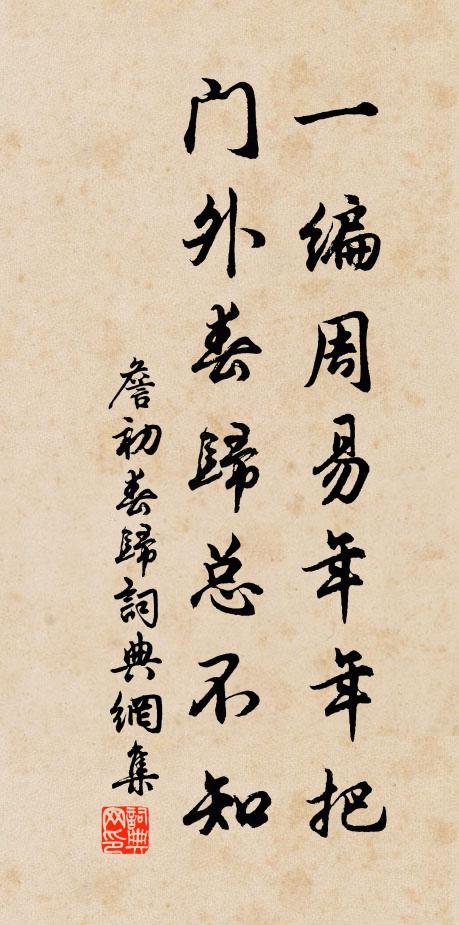 一编周易年年把
门外春歸总不知
詹初春歸詞典網集
詞典网印